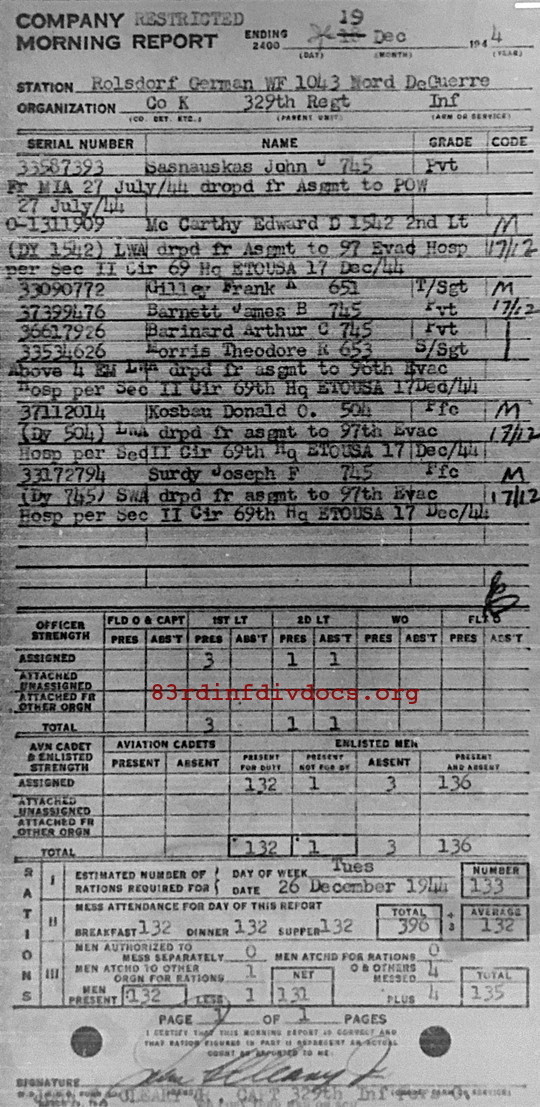 COMPANY RESTRICTED
MORNING REPORT
ENDING 2400 19 Dec 1944
(DAY) (MONTH) (YEAR)
STATION Rolsdorf German WF 1043 Nord DeGuerre
ORGANIZATION Co K 329th Regt Inf
(CO. DET. ETC.) (PARENT UNIT) (ARM OR SERVICE)
SERIAL NUMBER NAME GRADE CODE
33587393 Sasnauskas John J 745 Pvt
Fr MIA 27 July/44 dropd fr Asgmt to POW
27 July/44
O-1311909 Mc Carthy Edward D 1542 2nd Lt M
(DY 1542) LWA drpd fr Asgmt to 97 Evac Hosp 17/12
per Sec II Cir 69 Hq ETOUSA 17 Dec/44
33090772 Gilley Frank A 651 T/Sgt M
37399476 Barnett James B 745 Pvt 17/12
36617926 Barinard Arthur C 745 Pvt
33534626 Morris Theodore R 653 S/Sgt
Above 4 EM LWA drpd fr asgmt to 96th Evac
Hosp per Sec II Cir 69th Hq ETOUSA 17Dec/44
37112014 Kosbau Donald O. 504 Pfc M
(Dy 504) LWA drpd fr asgmt to 97th Evac 17/12
Hosp per SecII Cir 69th Hq ETOUSA 17 Dec/44
33172794 Surdy Joseph F 745 Pfc M
(Dy 745) SWA drpd fr asgmt to 97th Evac 17/12
Hosp per Sec II Cir 69th Hq ETOUSA 17 Dec/44
OFFICER STRENGTH FLD O & CAPT 1ST LT 2D LT WO FLT O
PRES ABS'T PRES ABS'T PRES ABS'T PRES ABS'T PRES ABS'T
ASSIGNED 3 1 1
ATTACHED UNASSIGNED
ATTACHED FR OTHER ORGN
83rdinfdivdocs.org
TOTAL 3 1 1
AVN CADET & ENLISTED STRENGTH AVIATION CADETS ENLISTED MEN
PRESENT ABSENT PRESENT FOR DUTY PRESENT NOT FOR DY ABSENT PRESENT AND ABSENT
ASSIGNED 132 1 3 136
ATTACHED UNASSIGNED
ATTACHED FR OTHER ORGN
TOTAL 132 1 3 136
RATIONS
I ESTIMATED NUMBER OF RATIONS REQUIRED FOR DAY OF WEEK Tues NUMBER
DATE 26 December 1944 133
II MESS ATTENDANCE FOR DAY OF THIS REPORT TOTAL ÷ 3 AVERAGE
BREAKFAST 132 DINNER 132 SUPPER 132 396 132
III MEN AUTHORIZED TO MESS SEPARATELY 0 MEN ATCHD FOR RATIONS 0
MEN ATCHD TO OTHER ORGN FOR RATIONS 1 NET O & OTHERS MESSED 4 TOTAL
MEN PRESENT 132 LESS 1 131 PLUS 4 135
PAGE 1 OF 1 PAGES
I CERTIFY THAT THIS MORNING REPORT IS CORRECT AND
THAT RATION FIGURES IN PART II REPRESENT AN ACTUAL
COUNT AS REPORTED TO ME:
SIGNATURE
CAPT 329th Inf